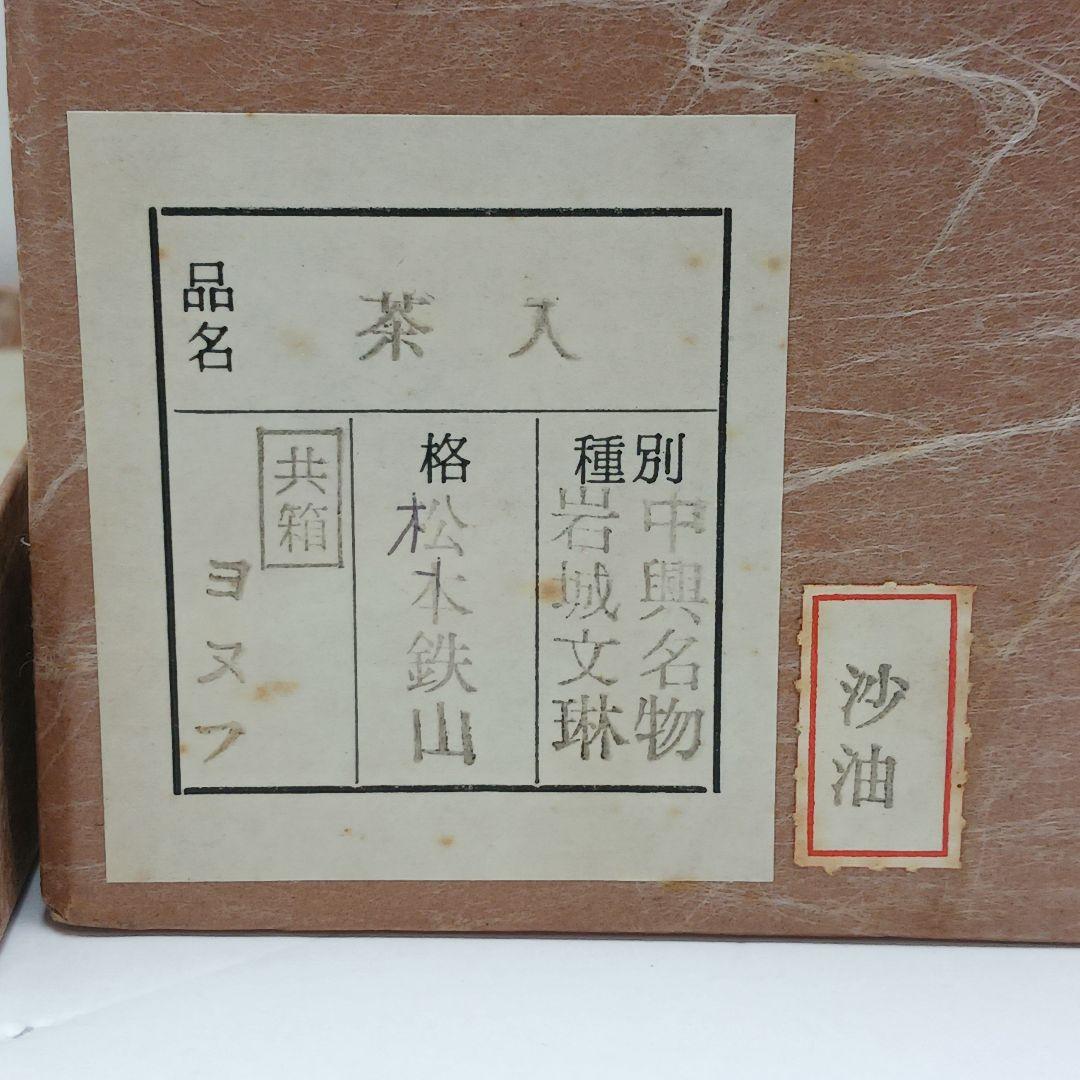 品名
茶入
種別
中興名物
岩城文琳
格
松本鉄山
共箱
ヨヌフ
沙油